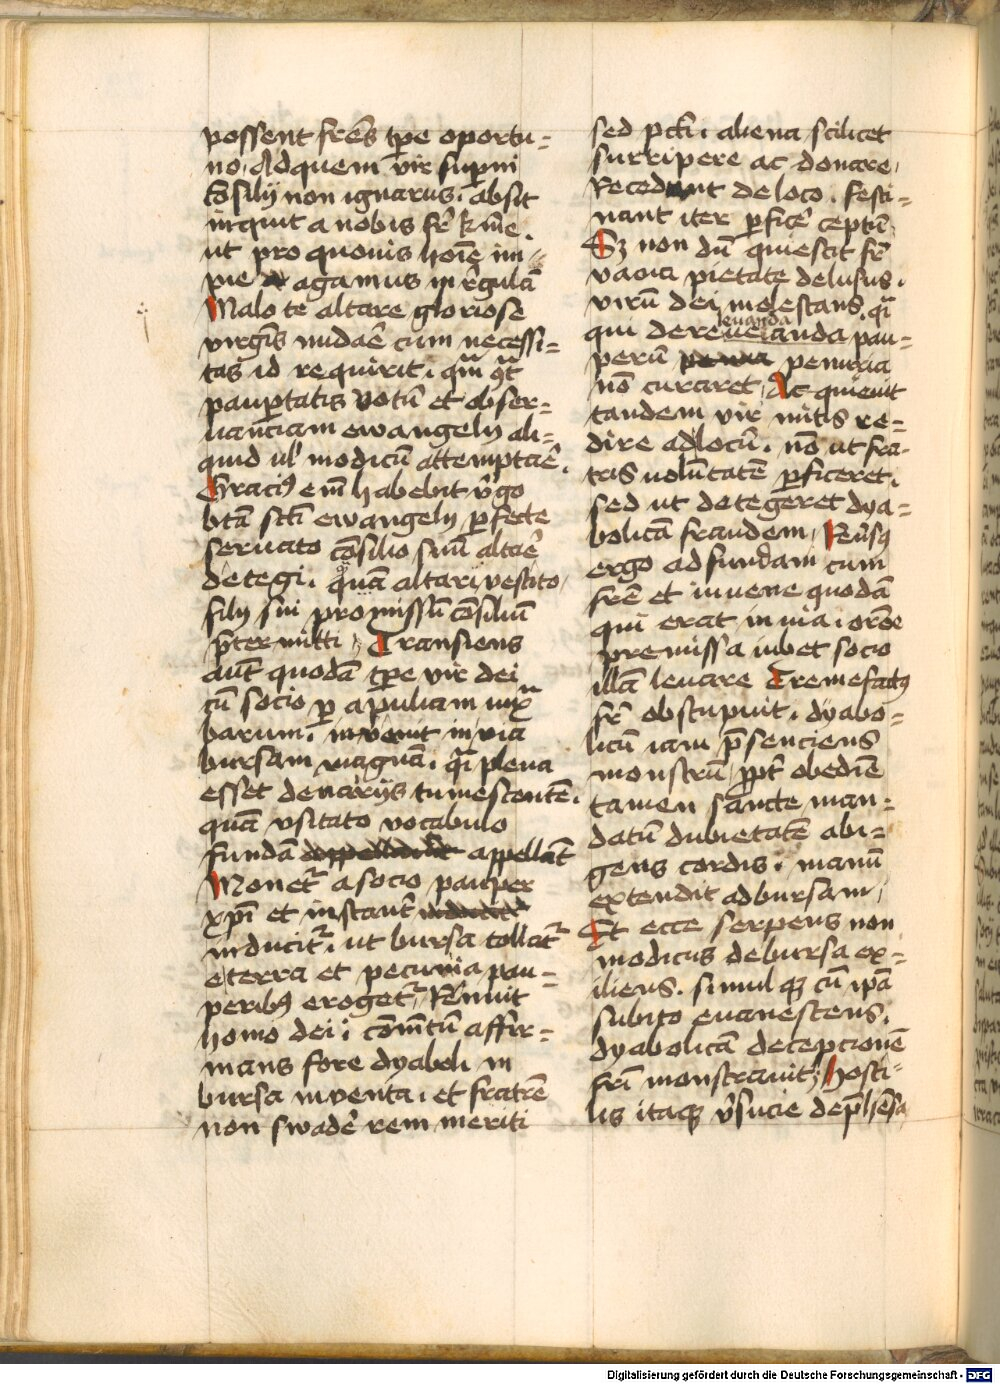 possent fr̄es tp̄e oportu=
no, Ad quem vir sup̄ni
cōsilij non ignarus. absit
inquit a nobis fr̄ k̄me.
ut pro quouis hoīe im=
pie agamus in rēgulā
Malo te altare gloriose
virgīs nudaē cum necessi=
tas id requirit. qm̄ 9t̄
paup̄tatis votū et obser=
uanciam ewangelij ali=
quid ul' modicū attemptaē.
Graci9 em̄ habebit v̄go
btā sc̄ti ewangelij p̄fecte
seruato cōsilio suū altaē
detegi. quā altari vestito,
filij sui promissū cōsiliū
p̄termitti, Transiens
aūt quodā tp̄e vir dei
cū socio p̄ apuliam iux̄
barum. inuenit in via
bursam magnā. q̄i plena
esset denarijs tumescentē.
quā vsitato vocabulo
fundā appellāt
Monet̄ a socio pauper
xp̄i et instant̄
inducit̄. ut bursa tollat̄
e terra et pecunia pau=
perib9 eroget̄, Rēnuit
homo dei i cōmtū affir=
mans fore dyaboli in
bursa inuenta. et fratrē
non swadē rem meriti
sed pctī. aliena scilicet
surripere ac donare,
Recedunt de loco. festi=
nant iter p̄ficē ceptū.
Sz non dū quiescit fr̄
vana pietate delusus.
virū dei molestans. q̄i
leuanda
qui de reueianda pau=
perū penuria
nō curaret, Acquieuit
tandem vir mitis re=
dire ad locū. nō ut fra-
tris volūtatē p̄ficeret.
sed ut detegeret dya=
bolicā fraudem, Reūs9
ergo ad fundam cum
fr̄e et iuuene quodā
qui erat in via. orōe
premissa iubet socio
illā leuare Tremefact9
fr̄ obstupuit. dyabo=
licū iam p̄senciens
monstrū, pp̄t obediē
tamen sancte man=
datū dubietatē abi=
gens cordis. manū
extendit ad bursam,
Et ecce serpens non
modicus de bursa ex=
iliens. simul q3 cū ip̄a
subito euanescens.
dyabolicā decepcionē
fr̄i monstrauit, Hosti=
lis itaq3 v̄sucie dep̄hēsa
Digitalisierung gefördert durch die Deutsche Forschungsgemeinschaft - DFG